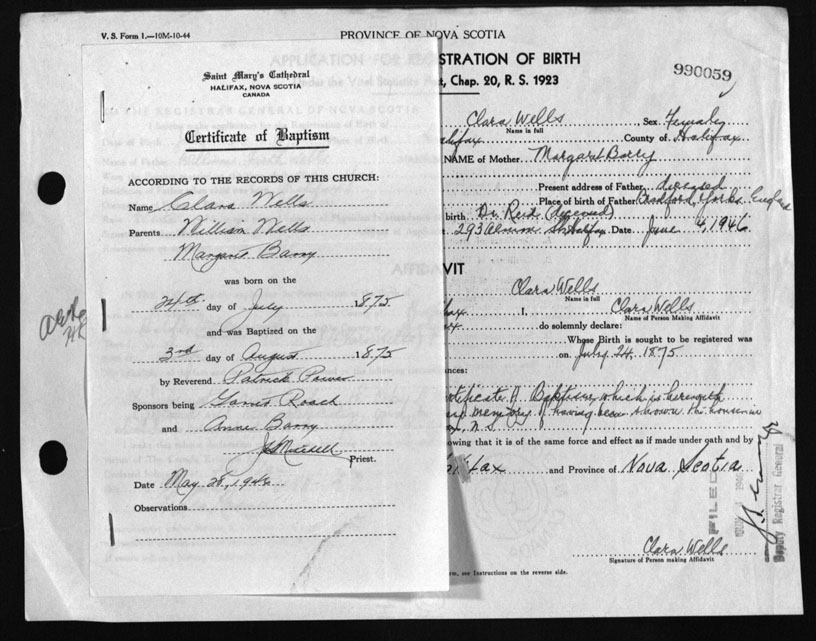 V. S. Form 1.—10M-10-44
PROVINCE OF NOVA SCOTIA
990059
Saint Mary's Cathedral
HALIFAX, NOVA SCOTIA
CANADA
Certificate of Baptism
ACCORDING TO THE RECORDS OF THIS CHURCH:
Name Clara Wells
Parents William Wells
Margaret Barry
was born on the
24th day of July 1875
and was Baptized on the
3rd day of August 1875
by Reverend Patrick Power
Sponsors being James Roach
and Annie Barry
Priest.
Date May 28, 1946
Observations
STRATION OF BIRTH
, Chap. 20, R. S. 1923
Clara Wells Sex Female
Name in full
alifax County of Halifax
NAME of Mother Margaret Barry
Present address of Father diseased
Place of birth of Father Bradford, Yorks, England
birth Dr. Reid (deceased)
293 Almon St. Halifax Date June 4, 1946
VIT
Clara Wells
Name in full
fax I, Clara Wells
Name of Person Making Affidavit
do solemnly declare:
Whose Birth is sought to be registered was
on July 24, 1875
nces:
rtificate of Baptism which is herewith
memory of having been shown the house in
x, N.S.
owing that it is of the same force and effect as if made under oath and by
lifax and Province of Nova Scotia
FILED
Deputy Registrar General
Clara Wells
Signature of Person making Affidavit
rm, see Instructions on the reverse side.